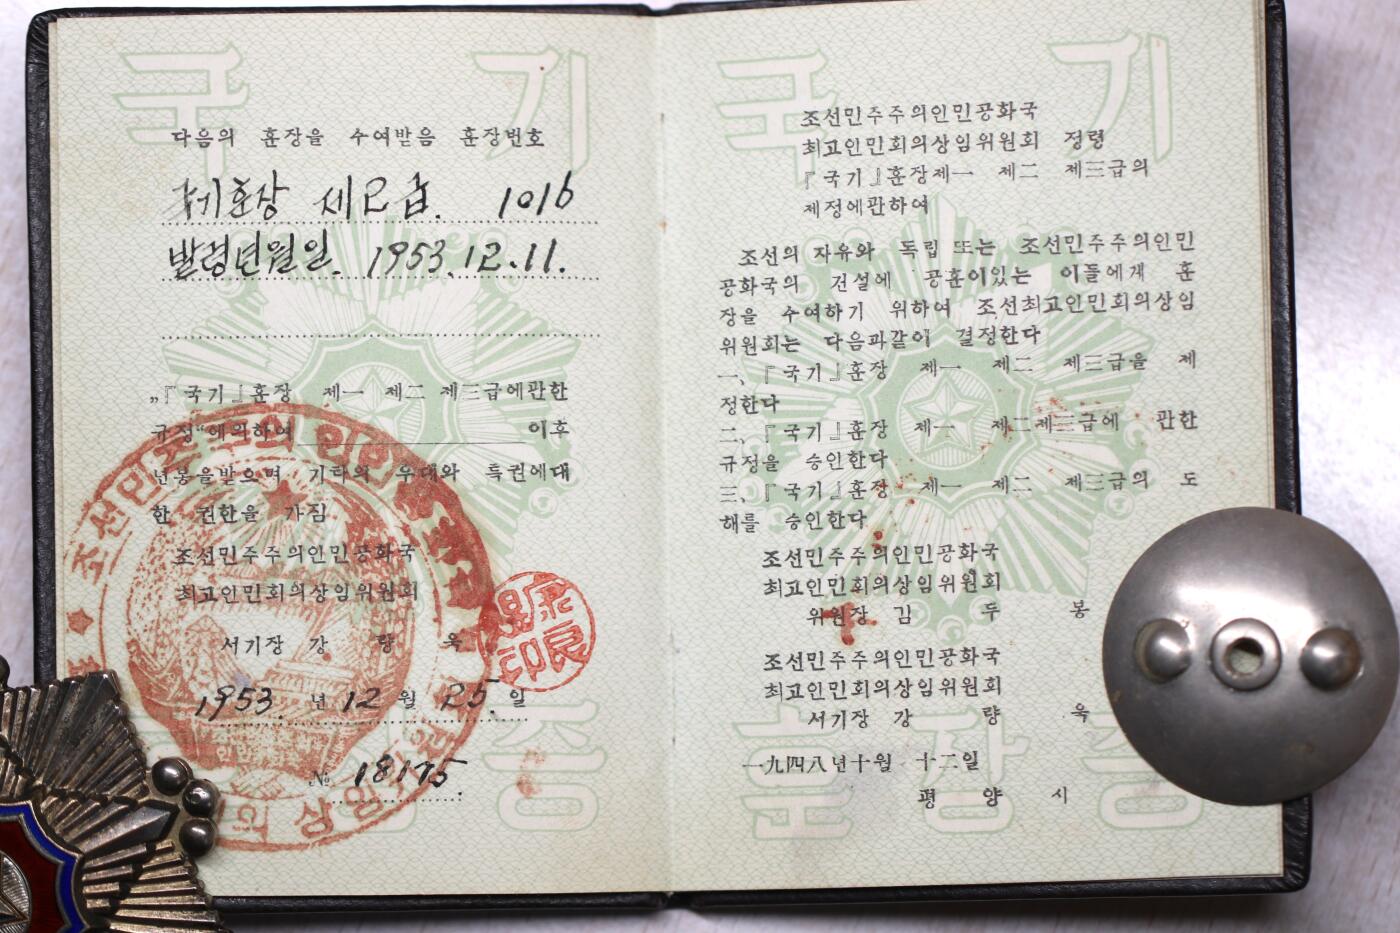 국 기
다음의 훈장을 수여받음 훈장번호
훈장 급. 1016
발령년월일. 1953.12.11.
„『국기』훈장 제一 제二 제三급에관한
규정“에의하여 이후
년봉을받으며 기타의 우대와 특권에대
한 권한을 가짐
조선민주주의인민공화국
최고인민회의상임위원회
서기장 강 량 욱
1953. 년 12 월 25. 일
№ 18175.
증
국 기
조선민주주의인민공화국
최고인민회의상임위원회 정령
『국기』훈장제一 제二 제三급의
제정에관하여
조선의 자유와 독립 또는 조선민주주의인민
공화국의 건설에 공훈이있는 이들에게 훈
장을 수여하기 위하여 조선최고인민회의상임
위원회는 다음과같이 결정한다
一、『국기』훈장 제一 제二 제三급을 제
정한다
二、『국기』훈장 제一 제二제三급에 관한
규정을 승인한다
三、『국기』훈장 제一 제二 제三급의 도
해를 승인한다
조선민주주의인민공화국
최고인민회의상임위원회
위원장 김 두 봉
조선민주주의인민공화국
최고인민회의상임위원회
서기장 강 량 욱
一九四八年十월 十二일
평 양 시
훈 장 증